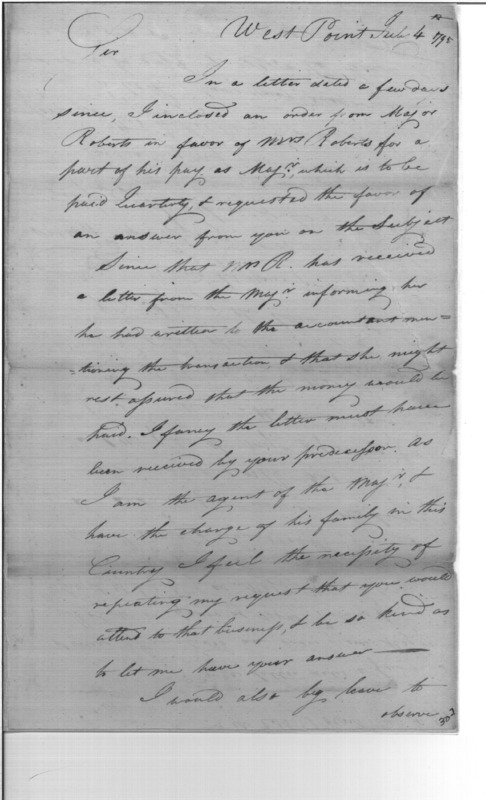 West Point Feb 4th 1795
Sir
In a letter dated a few days
since, I inclosed an order from Major
Roberts in favor of Mrs Roberts for a
part of his pay as Majr, which is to be
paid Quarterly, & requested the favor of
an answer from you on the Subject
Since that Mrs R. has received
a letter from the Majr. informing her
he had written to the accountant men=
=tioning the transaction, & that she might
rest assured that the money would be
paid. I fancy the letter must have
been received by your predecessor. As
I am the agent of the Majr, &
have the charge of his family in this
Country I feel the necessity of
repeating my request that you would
attend to that business, & be so kind as
to let me have your answer —
I would also beg leave to
observe